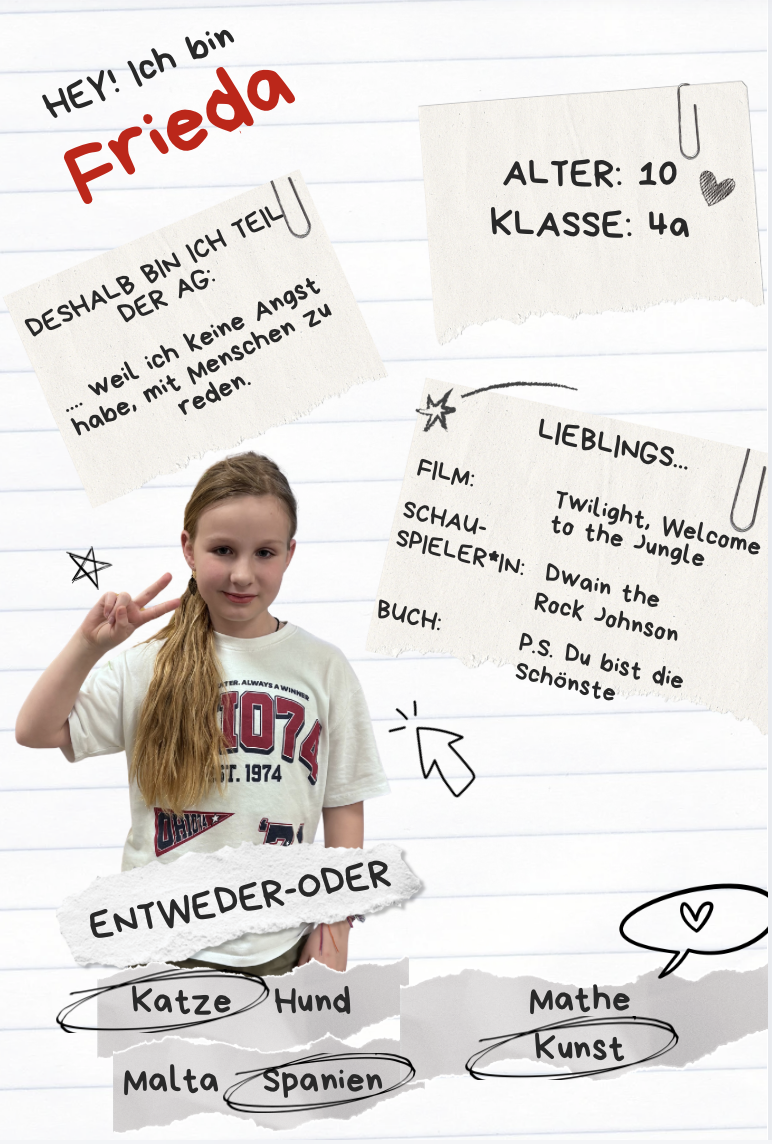 HEY! Ich bin
Frieda
ALTER: 10
KLASSE: 4a
DESHALB BIN ICH TEIL
DER AG:
.... weil ich keine Angst
habe, mit Menschen zu
reden.
LIEBLINGS...
FILM:
Twilight, Welcome
to the Jungle
SCHAU-
SPIELER*IN:
Dwain the
Rock Johnson
BUCH:
P.S. Du bist die
Schönste
ALWAYS A WINNER
1074
EST. 1974
OHIO74
'7
ENTWEDER-ODER
Katze Hund
Malta Spanien
Mathe
Kunst